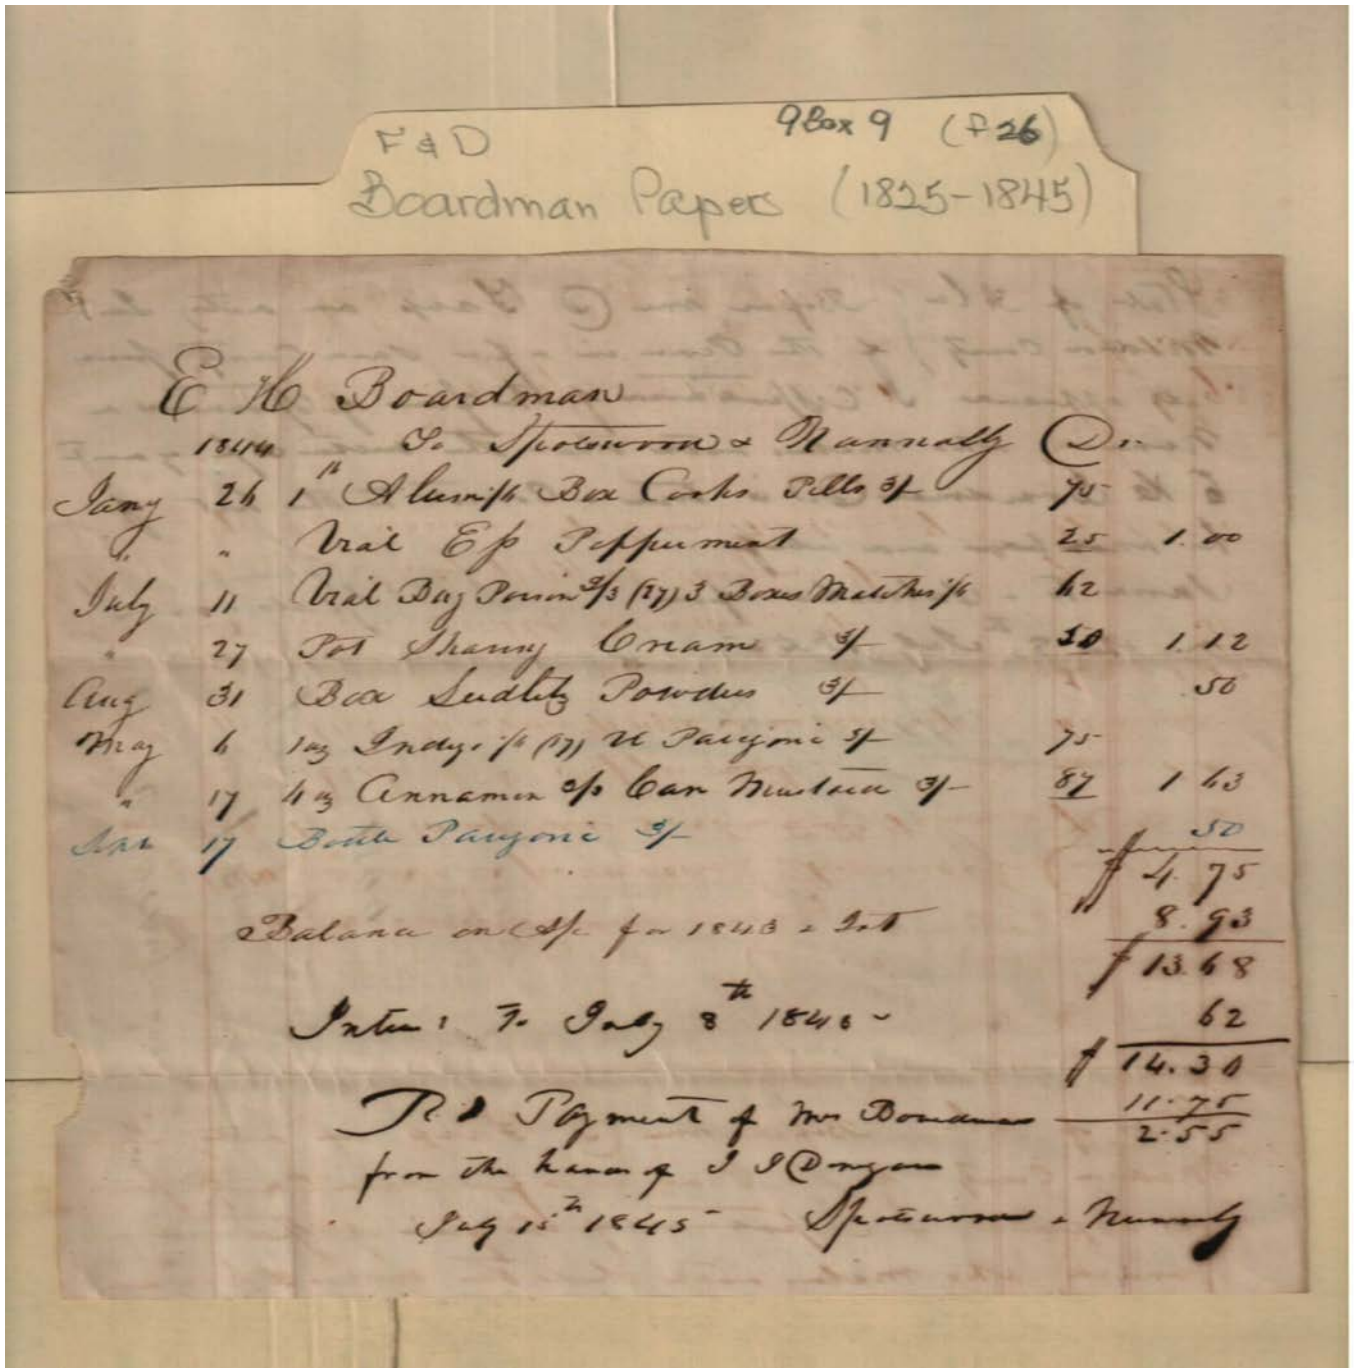 F & D Box 9 (f 26)
Boardman Papers (1825-1845)
E H Boardman
1844 To Spotswood & Nannally Dr
Jany 26 1 lb Alum Box Cooks Pills 3/- 75
" " Vial Ess Peppermint 25 1.00
July 11 Vial Bug Poison 2/3 (27) 3 Boxes Matches 62
" 27 Pot Shaving Cream 3/- 50 1 12
Aug 31 Box Seidlitz Powders 3/- .50
May 6 1 oz Indigo (17) Paregoric 75
" 17 4 oz Cinnamon Can Mustard 3/- 87 1 63
17 Bottle Paregoric 3/- 50
$ 4.75
Balance on A/c for 1843 & Int 8.93
$ 13.68
To July 8th 184 62
$ 14.30
Payment of Mrs Boardman 11.75
2.55
from the hands of J J
July 15th 1845 Spotswood & Nunnally